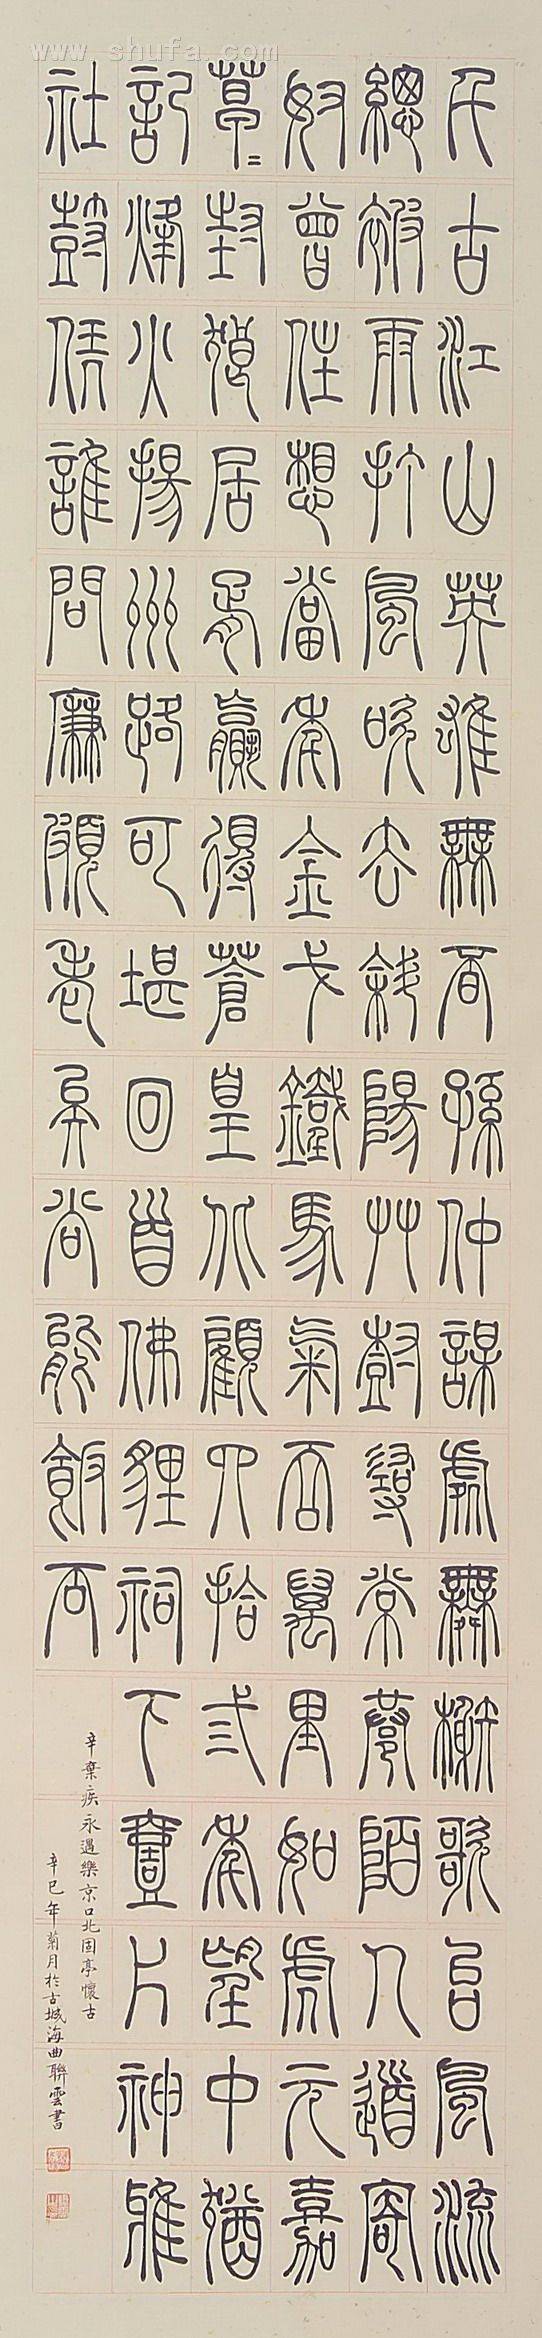 www.shufa.com
千古江山英雄無覓孫仲謀處舞榭歌台風流
總被雨打風吹去斜陽艸樹尋常巷陌人道寄
奴曾住想當年金戈鐵馬氣吞萬里如虎元嘉
草=封狼居胥贏得蒼皇北顧四拾弎年望中猶
記烽火揚州路可堪回首佛貍祠下壹片神鴉
社鼓凭誰問廉頗老矣尚能飯否
辛棄疾永遇樂京口北固亭懷古
辛巳年菊月於古城海曲聯雲書